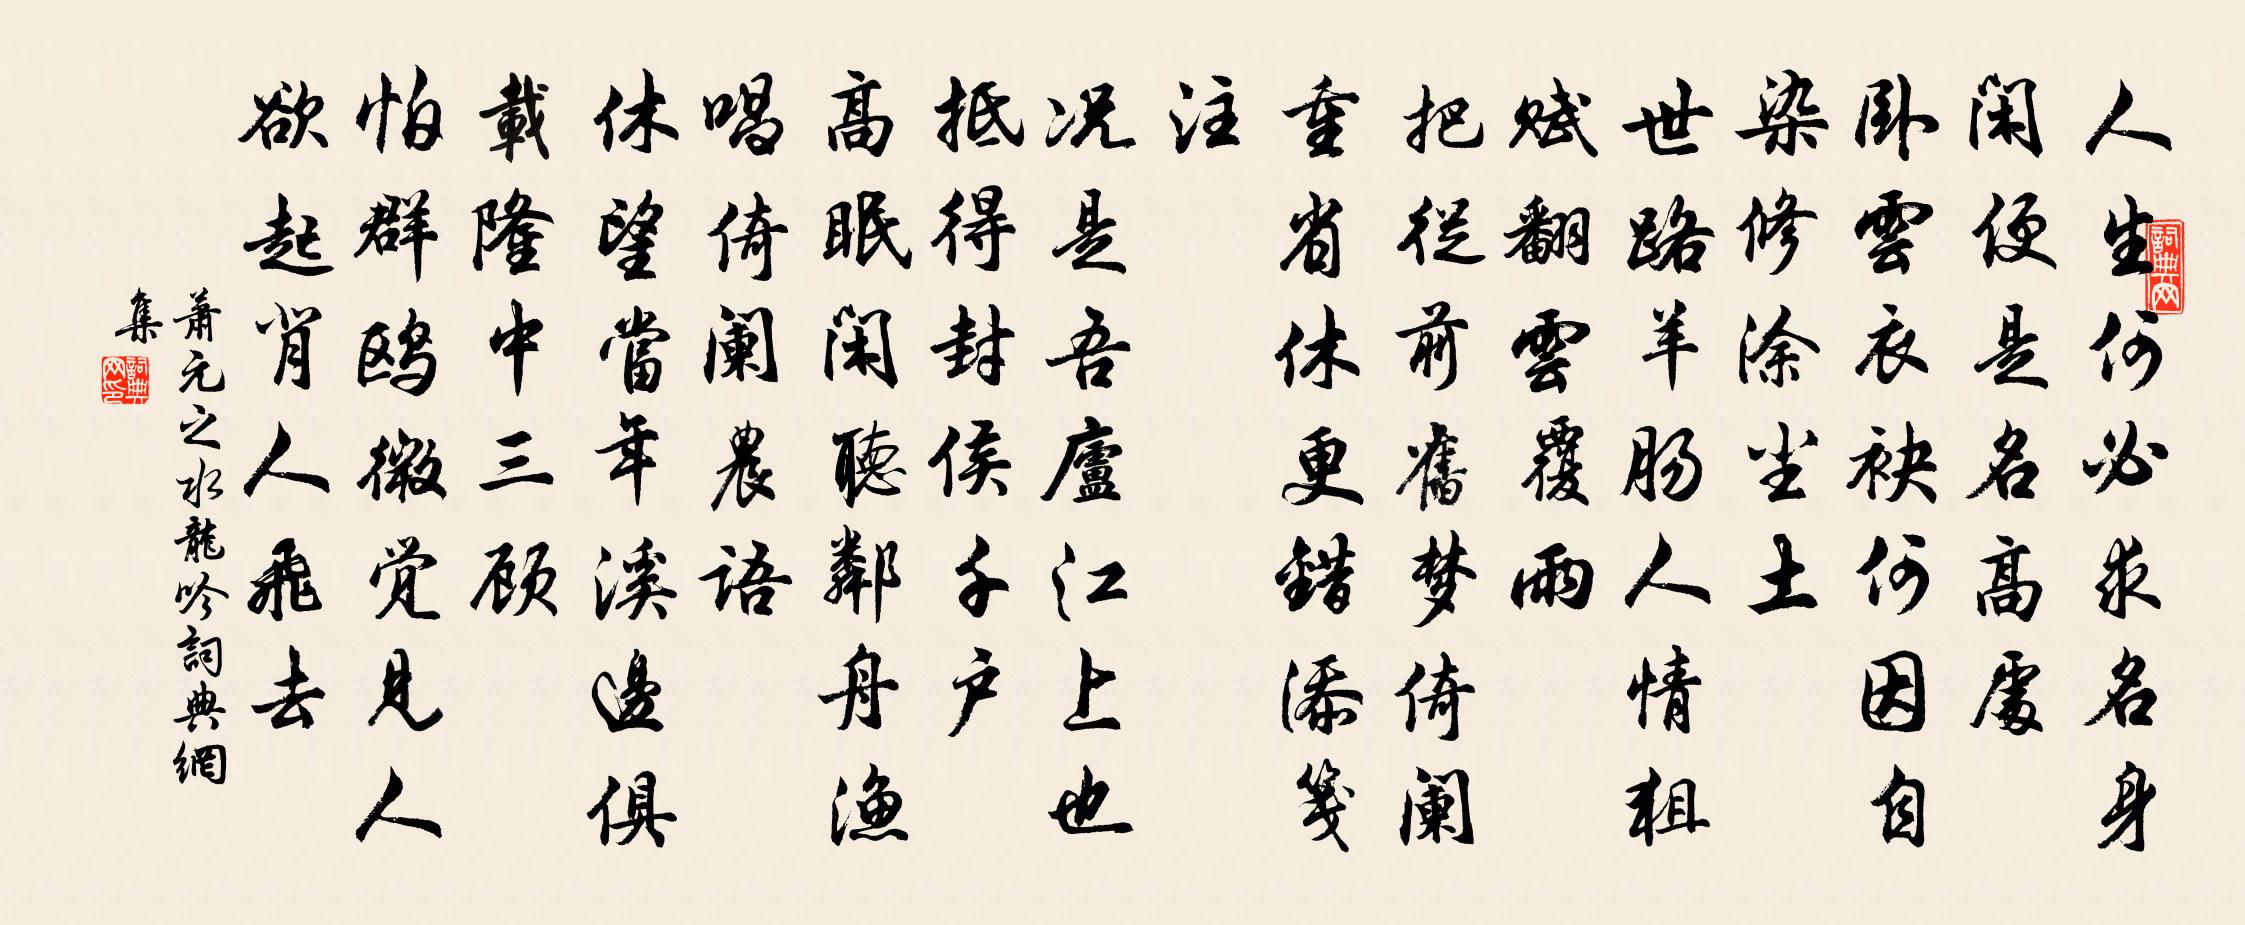 人生何必求名身
闲便是名高處
卧雲衣袂何因自
染修涂尘土
世路羊肠人情狙
赋翻雲覆雨
把従前舊梦倚阑
重省休更錯添笺
注
况是吾廬江上也
抵得封侯千户
高眠闲聴鄰舟漁
唱倚阑農語
休望當年溪邊俱
載隆中三顾
怕群鸥微觉見人
欲起背人飛去
萧元之水龍吟詞典網
集
詞典网
詞典网印